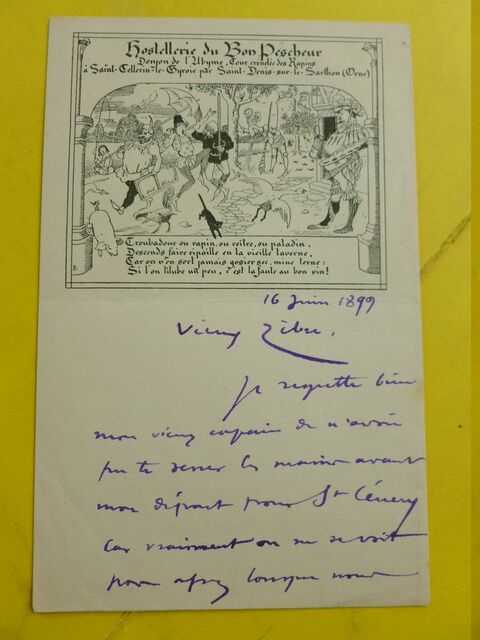 Hostellerie du Bon Pescheur
Donjon de l'Abyme, Tour crenelée des Rapins
à Saint-Cellerin-le-Gyroie par Saint-Denis-sur-le-Sarthon (Orne)
Troubadour ou rapin, ou reitre, ou paladin,
Descends faire ripaille en la vieille taverne,
Car on n'en sort jamais gosier sec, mine terne:
Si l'on titube un peu, c'est la faute au bon vin!
16 Juin 1899
Vieux
Je regrette bien
mon vieux copain de n'avoir
pu te serrer les mains avant
mon départ pour St Cénery
Car vraiment on ne se voit
pas assez lorsque nous